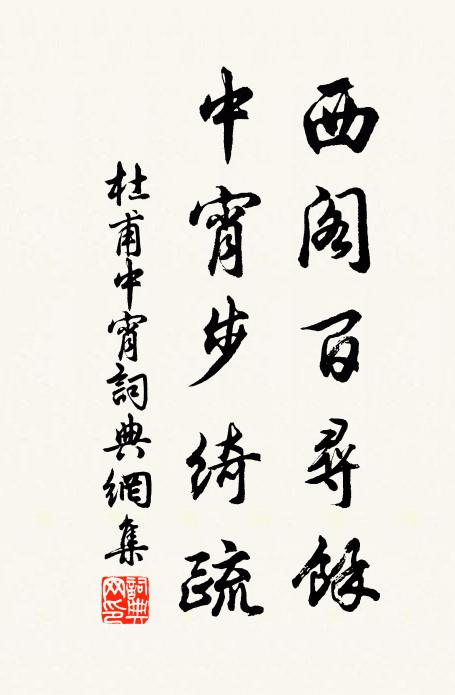 西阁百尋餘
中宵步綺疏
杜甫中宵詞典網集
詞典网印